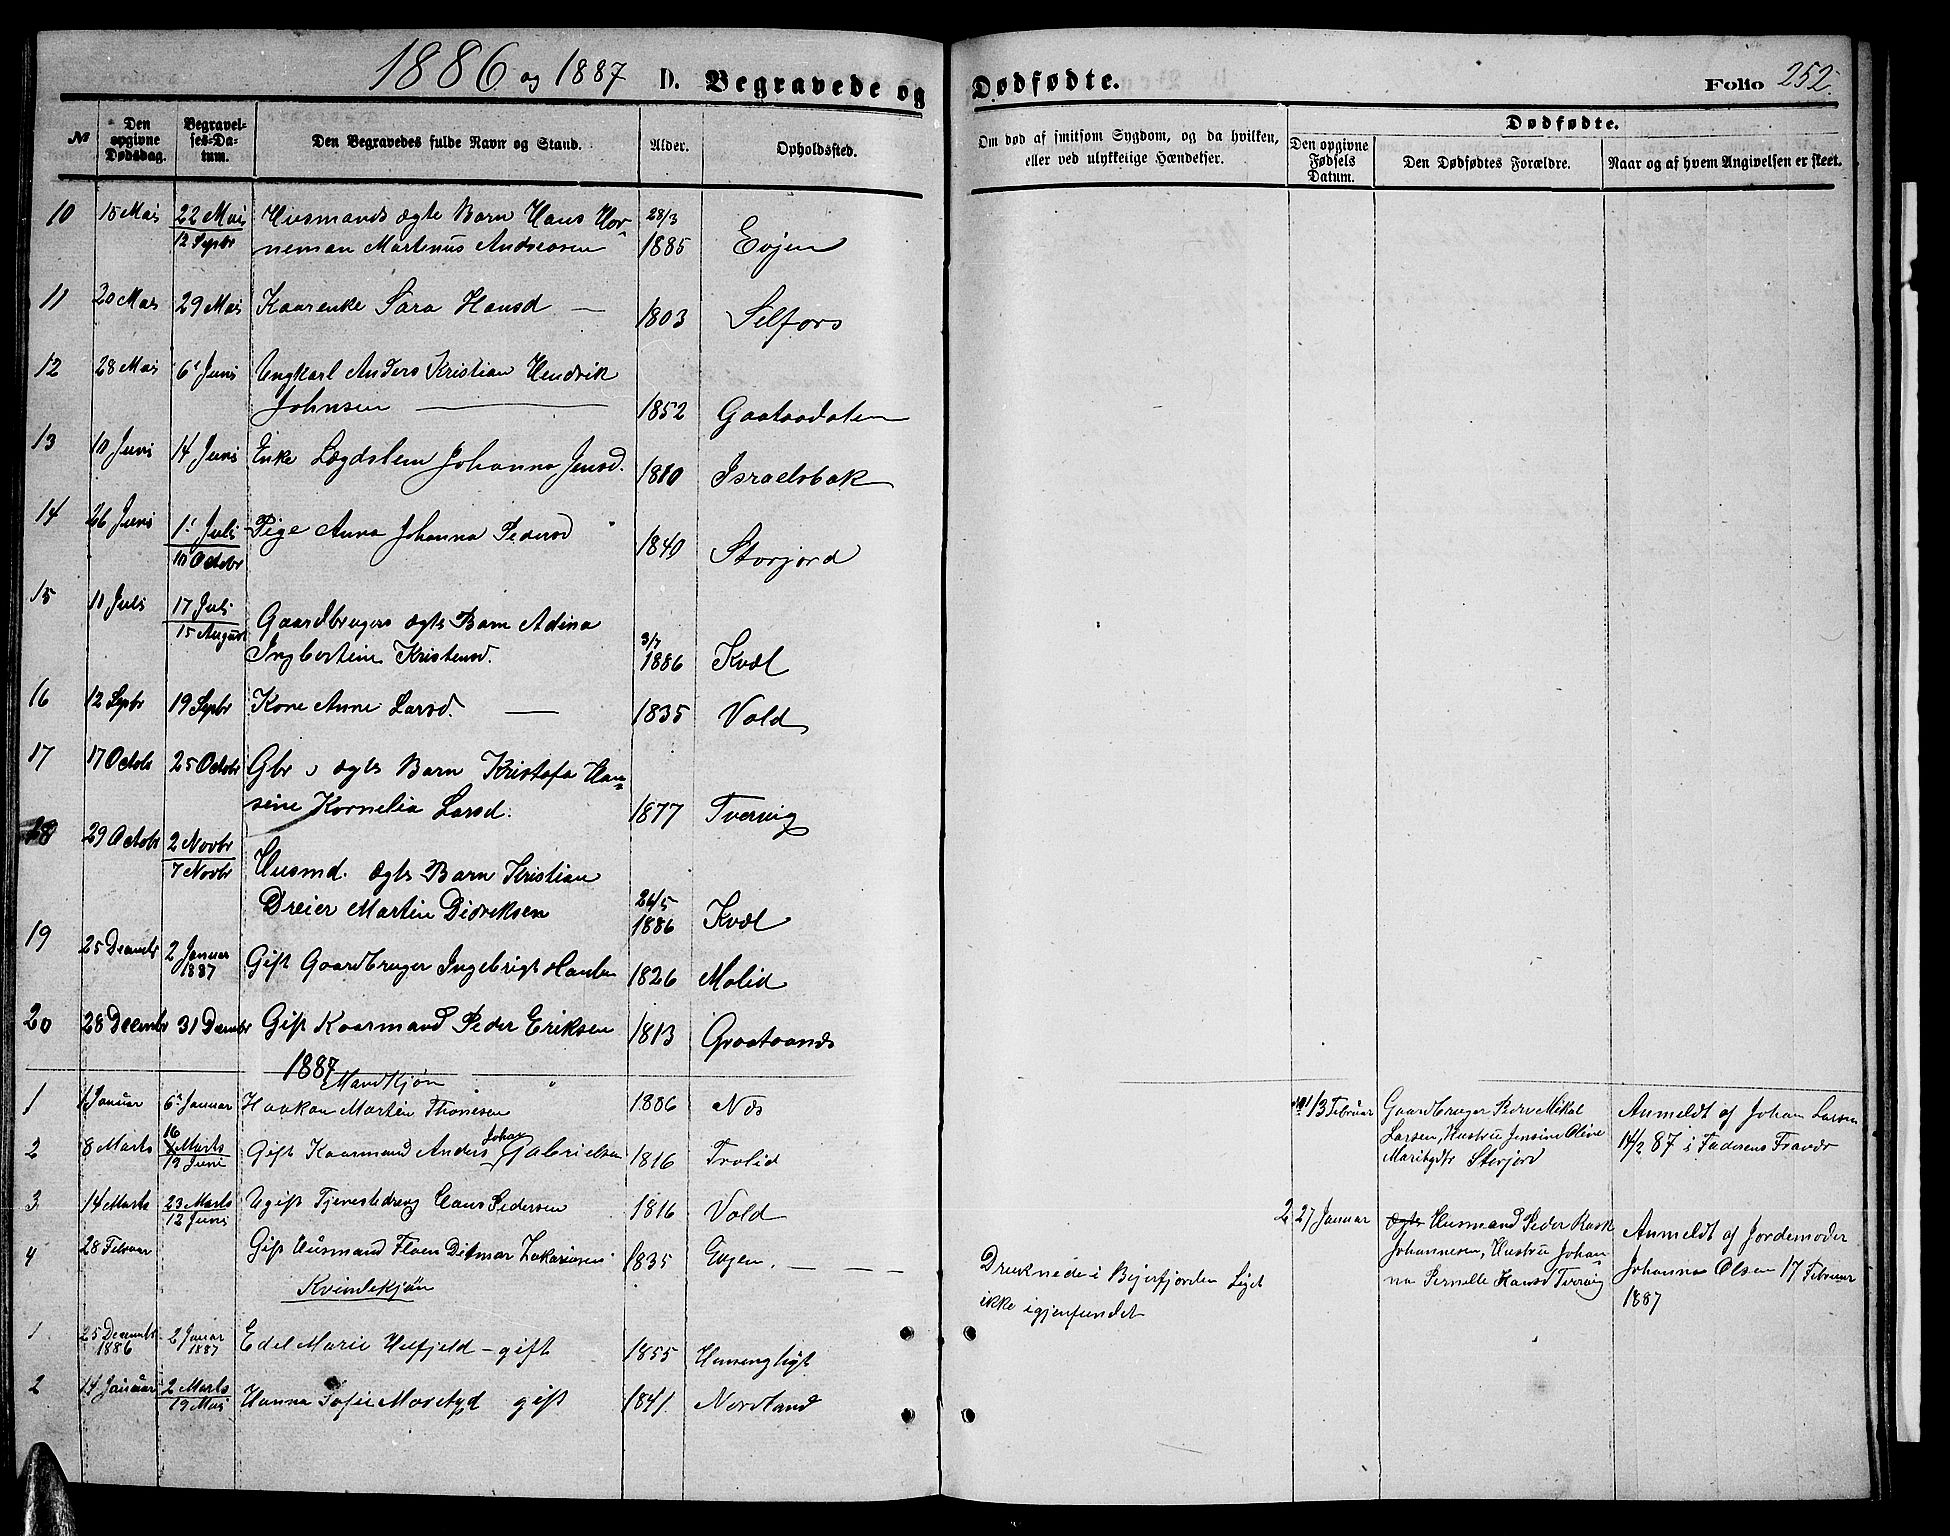 1886 og 1887 D. Begravede og Dødfødte. Folio 252.
No
Den opgivne Dødsdag.
Begravelses-Datum.
Den Begravedes fulde Navn og Stand.
Alder.
Opholdssted.
Om død af smitsom Sygdom, og da hvilken,
eller ved ulykkelige Hændelser.
Dødfødte.
Den opgivne Fødsels Datum.
Den Dødfødtes Forældre.
Naar og af hvem Angivelsen er skeet.
10 15 Mai 22 Mai Husmands ægte Barn Hans Hor- 28/3
12 Sepbr neman Martinus Andreasen 1885 Evjen
11 20 Mai 29 Mai Kaarenke Sara Hansd — 1803 Selfors
12 28 Mai 6' Juni Ungkarl Anders Kristian Hendrik
Johnsen — 1852
13 10 Juni 14 Juni Enke Lægdslem Johanna Jensd. 1810 Israelsbak
14 26 Juni 1' Juli Pige Anna Johanna Pedersd 1840 Storjord
10 Octobr
15 11 Juli 17 Juli
15 August Gaardbrugers ægte Barn Adina 3/7
Ingbertine Kristensd. 1886 Kvæl
16 12 Sepbr 19 Sepbr Kone Anne Larsd. — 1835 Vold
17 17 Octob 25 Octobr Gbr ægte Barn Kristofa Han-
sine Kornelia Larsd. 1877 Tvervig
18 29 Octobr 2 Novbr
7 Novbr Husmd. ægte Barn Kristian
Dreier Martin Didreksen 26/5 1886 Kvæl
19 25 Decembr 2 Januar 1887 Gift Gaardbruger Ingebrigt Hansen 1826 Molid
20 28 Decembr 31 Decembr Gift Kaarmand Peder Eriksen 1813 Graataanæs
1887
Mandkjøn
1 1 Januar 6' Januar Haakon Martin Thonesen 1886 Næs
13 Februar Gaardbruger Peder Mikal
Larsen, Hustru Jensine Olive
Storjord
Anmeldt af Johan Larsen
14/2 87 i Faderens Fravær
2 8 Marts 16 Marts Gift Kaarmand Anders Johan Gabrielsen 1816 Trolid
12 Juni
3 14 Marts 23 Marts Ugift Tjenestedreng Hans Pedersen 1816 Vold
12 Juni
2 27 Januar Ægte Husmand Peder Rask
Johannesen, Hustru Johan-
na Pernille Hansd Tvervig
Anmeldt af Jordemoder
Johanna Olsen 17 Februar
1887
4 28 Februar Gift Husmand Floen Ditmar Zakariasen 1835 Evjen. — — —
Druknede i Bejerfjorden Liget
ikke igjenfundet
Kvindekjøn
1 25 Decembr 1886 2 Januar 1887 Edel Marie Ulfjeld - gift 1855
2 14 Januar 2 Marts Hanna Sofie gift 1841. Nordland
19 Mai